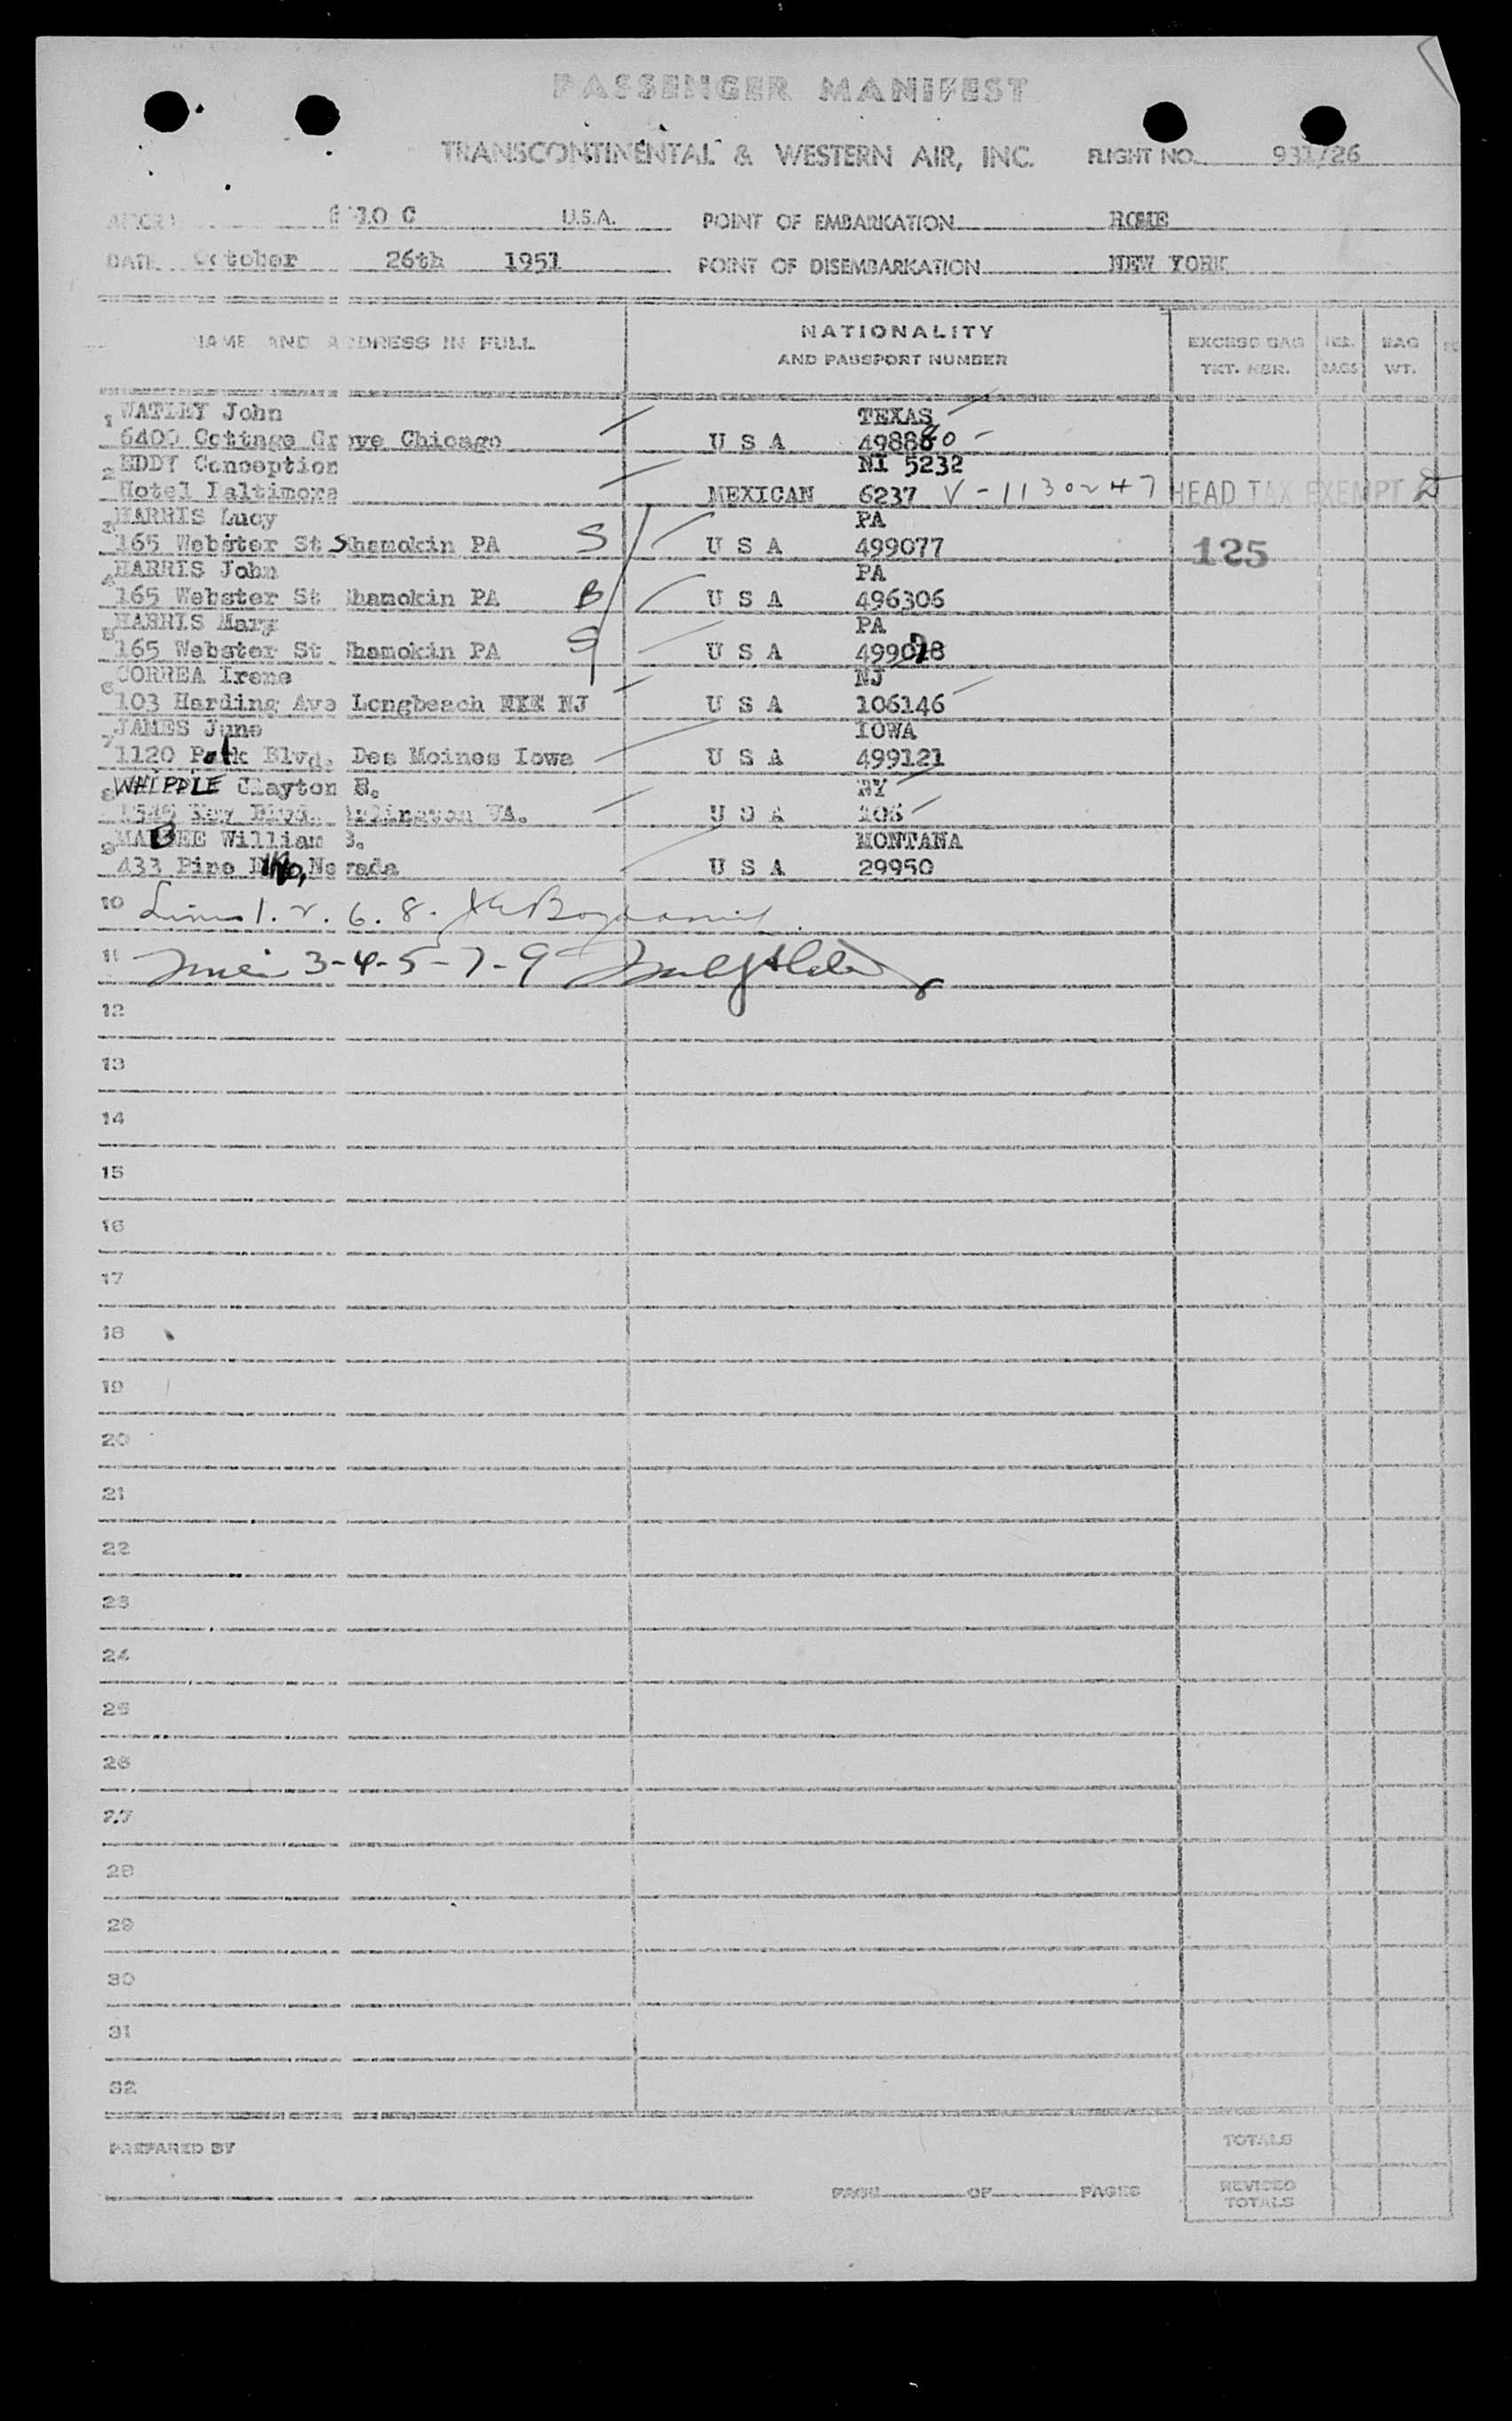 PASSENGER MANIFEST
TRANSCONTINENTAL & WESTERN AIR, INC. FLIGHT NO. 931/26
10 C U.S.A. POINT OF EMBARKATION ROME
DATE October 26th 1951 POINT OF DISEMBARKATION NEW YORK
NAME AND ADDRESS IN FULL
NATIONALITY
AND PASSPORT NUMBER
EXCESS BAG
TKT. NBR.
BAGS
BAG
WT.
1 WATLEY John TEXAS
6400 Cottage Grove Chicago U S A
2 EDDY Conception NI 5232
Hotel Baltimore MEXICAN 6237 V-1130247 HEAD TAX EXEMPT
3 HARRIS Lucy PA
165 Webster St Shamokin PA S U S A 499077 125
4 HARRIS John PA
165 Webster St Shamokin PA B U S A 496306
5 HARRIS Mary PA
165 Webster St Shamokin PA S U S A 499078
6 CORREA Irene NJ
103 Harding Ave Longbeach NJ U S A 106146
7 JAMES June IOWA
1120 Polk Blvd. Des Moines Iowa U S A 499121
8 WHIPPLE Clayton E. NY
Arlington VA. U S A 106
9 MABEE William B. MONTANA
433 Pine Elko, Nevada U S A 29950
10 Lines 1. 2. 6. 8.
11 Lines 3-4-5-7-9
12
13
14
15
16
17
18
19
20
21
22
23
24
25
26
27
28
29
30
31
32
PREPARED BY
PAGE OF PAGES
TOTALS
REVISED
TOTALS